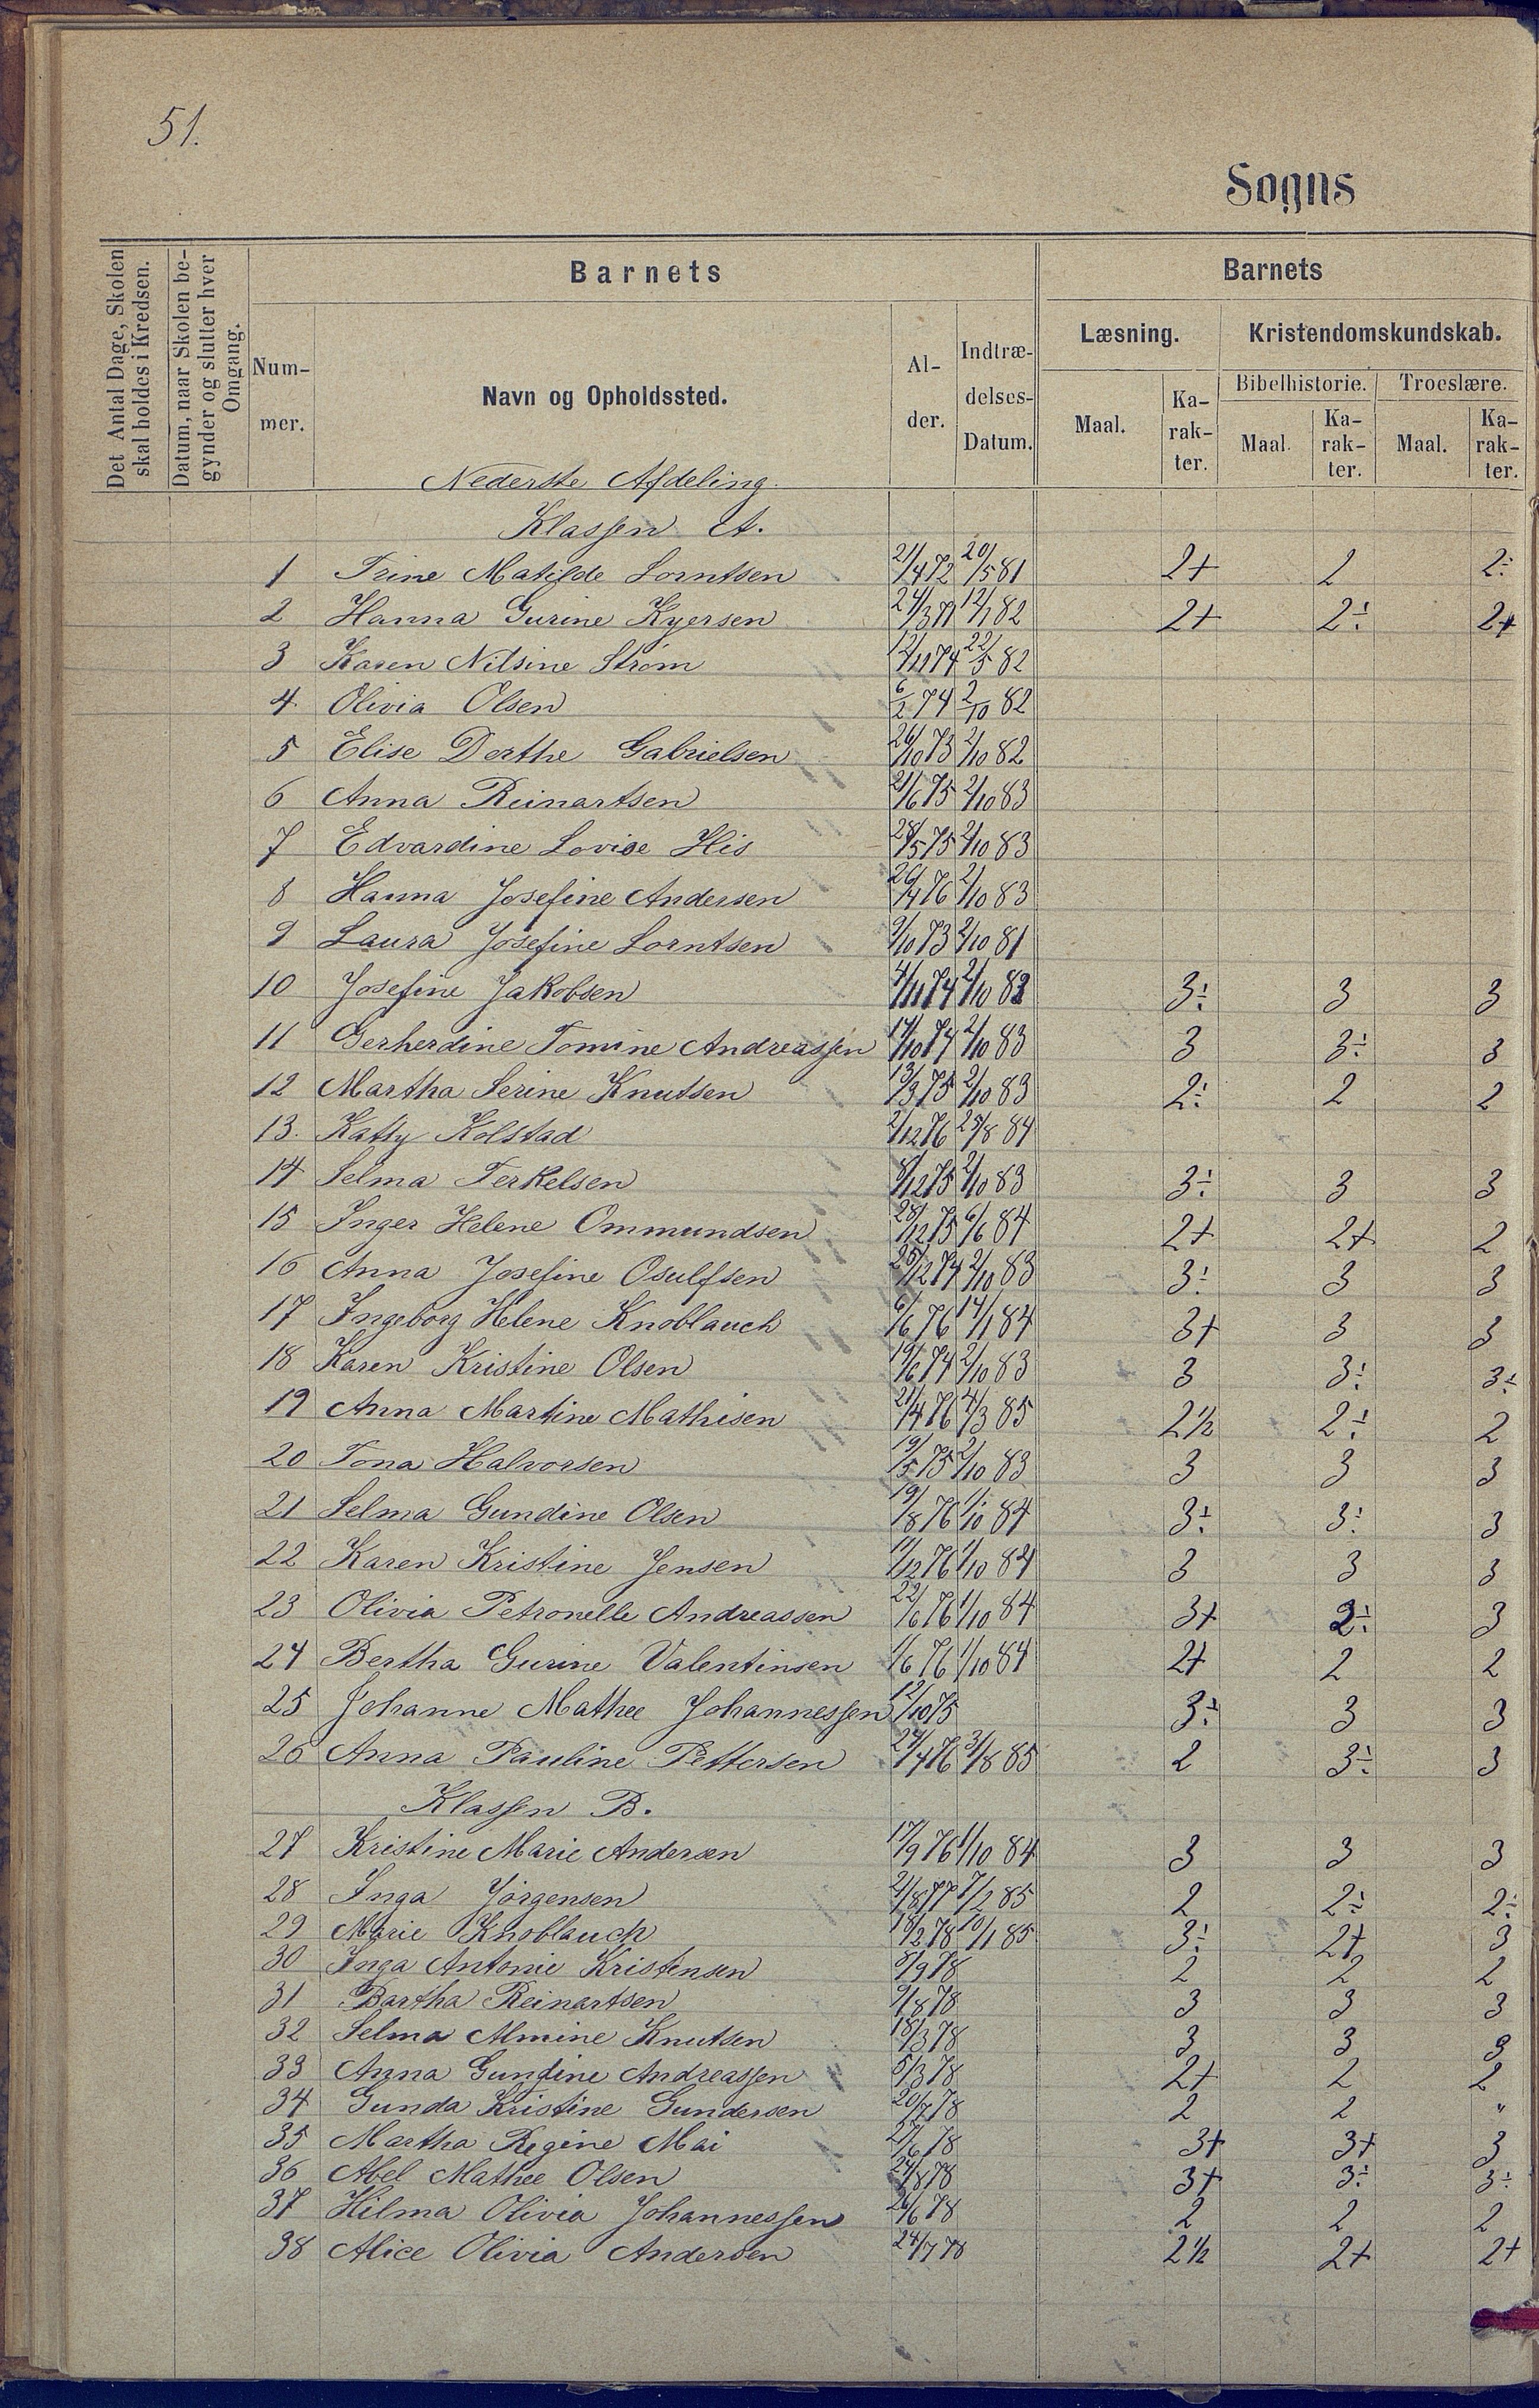 51.
Sogns
Det Antal Dage, Skolen skal holdes i Kredsen.
Datum, naar Skolen begynder og slutter hver Omgang.
Barnets
Barnets
Nummer.
Navn og Opholdssted.
Alder.
Indtrædelses-Datum.
Læsning.
Kristendomskundskab.
Bibelhistorie.
Troeslære.
Maal.
Karakter.
Maal.
Karakter.
Maal.
Karakter.
Nederste Afdeling.
Klassen A.
1 Trine Matilde Lorntsen 21/4 72 20/5 81 2+ 2 2÷
2 Hanna Gurine Kyersen 24/3 71 12/1 82 2+ 2÷ 2+
3 Karen Nilsine Strøm 12/11 74 22/5 82
4 Olivia Olsen 6/2 74 2/10 82
5 Elise Dorthe Gabrielsen 26/10 73 2/10 82
6 Anna Reinartsen 21/6 75 2/10 83
7 Edvardine Lovise His 28/5 75 2/10 83
8 Hanna Josefine Andersen 26/4 76 2/10 83
9 Laura Josefine Lorntsen 9/10 73 2/10 81
10 Josefine Jakobsen 4/11 74 2/10 82 3÷ 3 3
11 Gerherdine Tomine Andreassen 14/10 74 2/10 83 3 3÷ 3
12 Martha Serine Knutsen 13/3 75 2/10 83 2÷ 2 2
13. Kathy Kolstad 2/12 76 25/8 84
14 Selma Terkelsen 8/12 75 2/10 83 3÷ 3 3
15 Inger Helene Ommundsen 28/12 75 6/6 84 2+ 2+ 2
16 Anna Josefine Osulfsen 25/12 74 2/10 83 3÷ 3 3
17 Ingeborg Helene Knoblauch 6/6 76 14/1 84 3+ 3 3
18 Karen Kristine Olsen 19/6 74 2/10 83 3 3÷ 3÷
19 Anna Martine Mathisen 21/4 76 4/3 85 2½ 2÷ 2
20 Tona Halvorsen 19/5 75 2/10 83 3 3 3
21 Selma Gundine Olsen 19/8 76 1/10 84 3÷ 3÷ 3
22 Karen Kristine Jensen 11/12 76 1/10 84 3 3 3
23 Olivia Petronelle Andreassen 22/6 76 1/10 84 3+ 2÷ 3
24 Bertha Gurine Valentinsen 1/6 76 1/10 84 2+ 2 2
25 Johanne Mathee Johannessen 12/10 75 3÷ 3 3
26 Anna Pauline Pettersen 24/4 76 31/8 85 2 3÷ 3
Klassen B.
27 Kristine Marie Andersen 17/9 76 1/10 84 3 3 3
28 Inga Jörgensen 2/8 77 7/2 85 2 2÷ 2÷
29 Marie Knoblauch 18/2 78 10/1 85 3÷ 2+ 3
30 Inga Antonie Kristensen 8/9 78 2 2 2
31 Bartha Reinartsen 9/8 78 3 3 3
32 Selma Almine Knutsen 18/3 78 3 3 3
33 Anna Gundine Andreassen 5/3 78 2+ 2 2
34 Gunda Kristine Gundersen 20/7 78 2 2 "
35 Martha Regine Mai 27/6 78 3+ 3+ 3
36 Abel Mathee Olsen 24/8 78 3+ 3÷ 3÷
37 Hilma Olivia Johannessen 26/6 78 2 2 2
38 Alice Olivia Andersen 24/7 78 2½ 2+ 2+